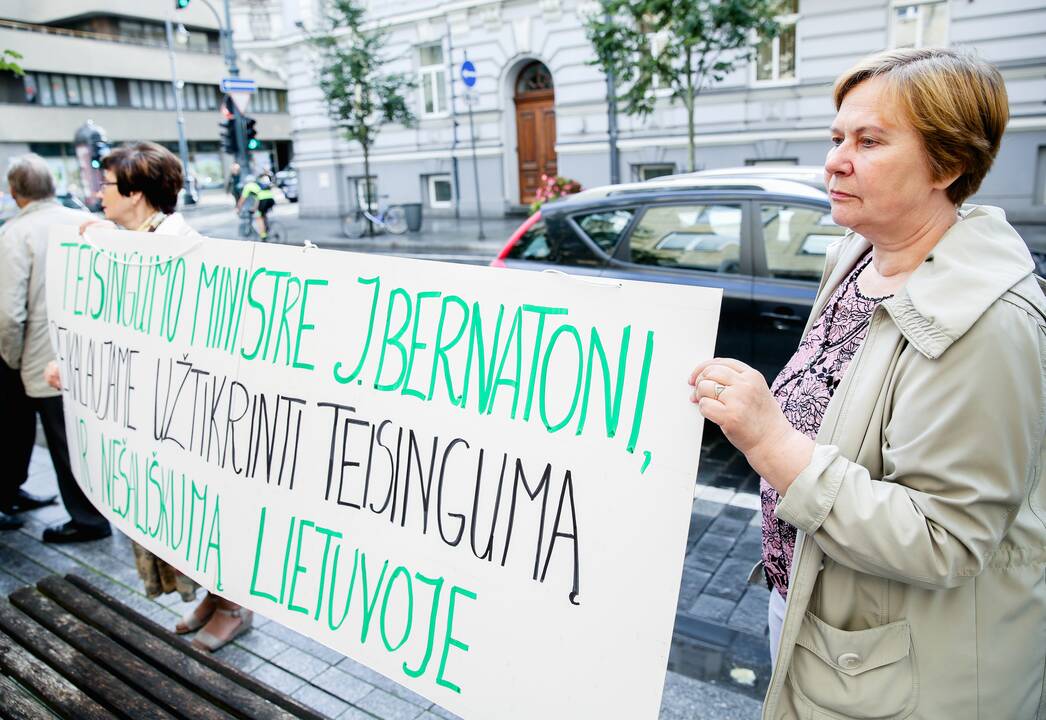 TEISINGUMO MINISTRE J.BERNATONI,
REIKALAUJAME UŽTIKRINTI TEISINGUMĄ
IR NEŠALIŠKUMĄ LIETUVOJE